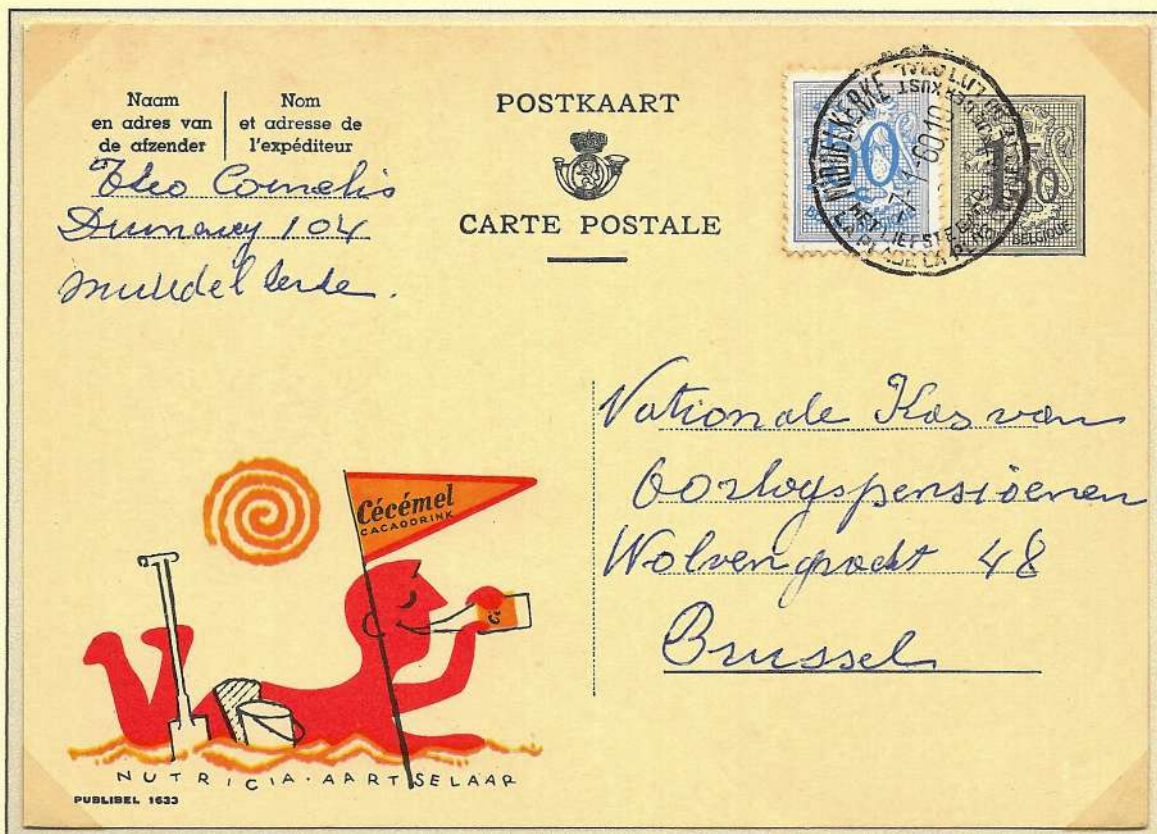 Naam
en adres van
de afzender
Nom
et adresse de
l'expéditeur
POSTKAART
CARTE POSTALE
Cornelis
104
50
1 50
BELGIQUE
MIDDELKERKE
HET LIEFSTE
Nationale Kas van
Oorlogspensioenen
Wolvengracht 48
Brussel
Cécémel
CACAODRINK
NUTRICIA · AARTSELAAR
PUBLIBEL 1633